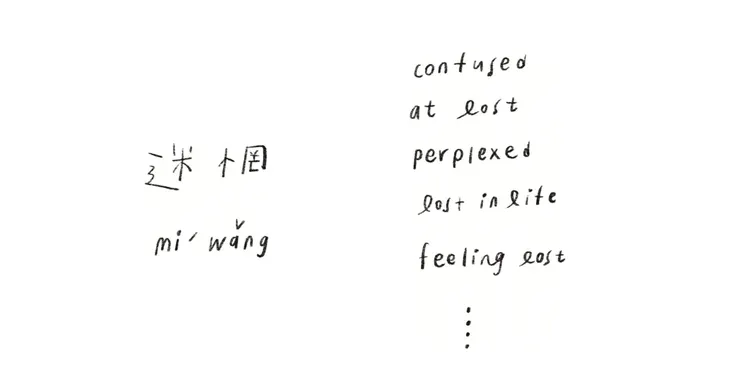 迷惘
mí wǎng
confused
at lost
perplexed
lost in life
feeling lost
⋮